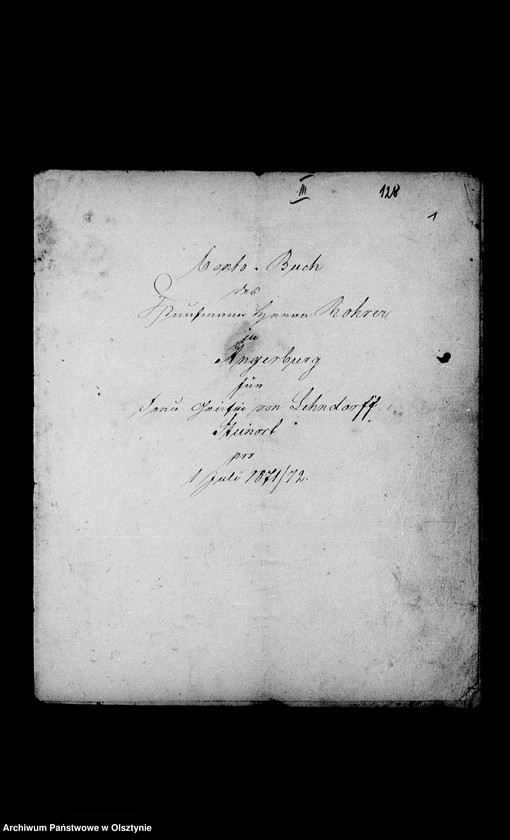 III
128
1
Conto-Buch
des
Kaufmann Herrn Rohrer
in
Angerburg
für
Frau Gräfin von Lehndorff
Steinort
pro
1 Juli 1871/72.
Archiwum Państwowe w Olsztynie